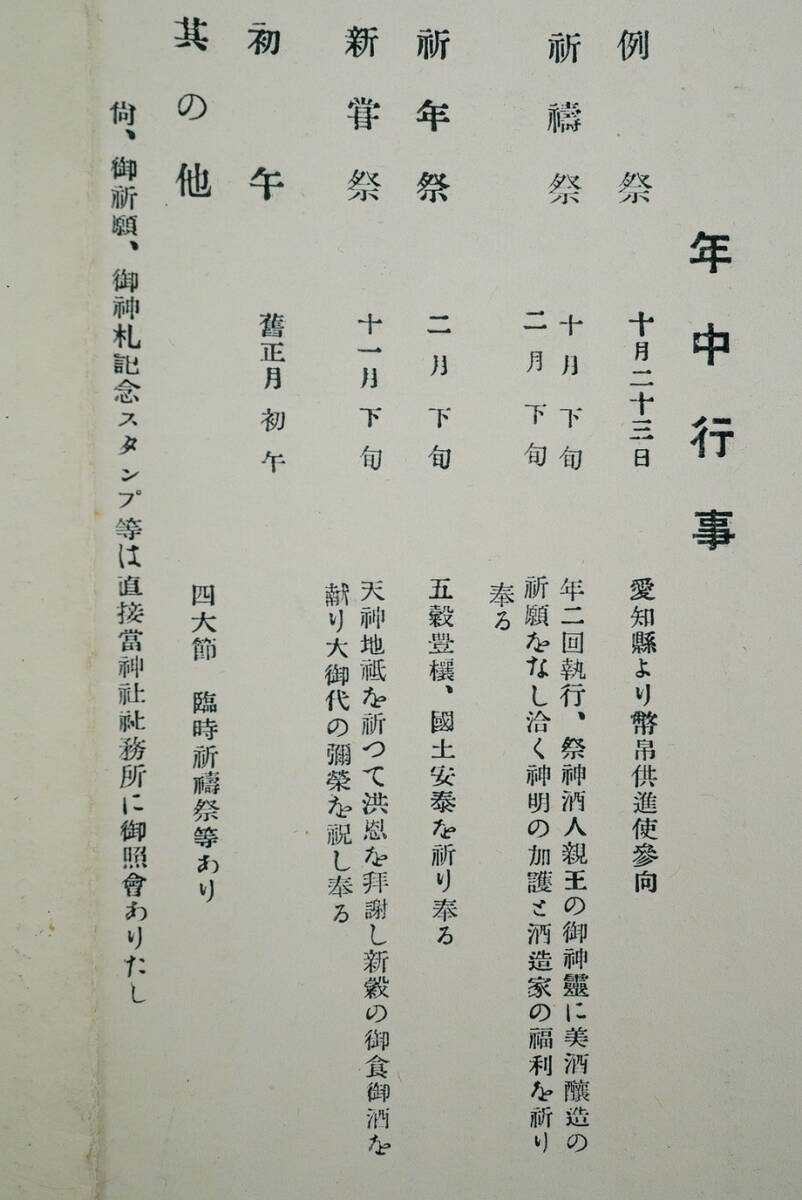 年中行事
例祭 十月二十三日 愛知縣より幣帛供進使參向
祈禱祭 十月下旬 二月下旬 年二回執行、祭神酒人親王の御神靈に美酒釀造の
祈願をなし洽く神明の加護と酒造家の福利を祈り
奉る
祈年祭 二月下旬 五穀豊穰、國土安泰を祈り奉る
新甞祭 十一月下旬 天神地祗を祈つて洪恩を拜謝し新穀の御食御酒を
献り大御代の彌榮を祝し奉る
初午 舊正月初午
其の他 四大節 臨時祈禱祭等あり
尙、御祈願、御神札記念スタンプ等は直接當神社社務所に御照會ありたし